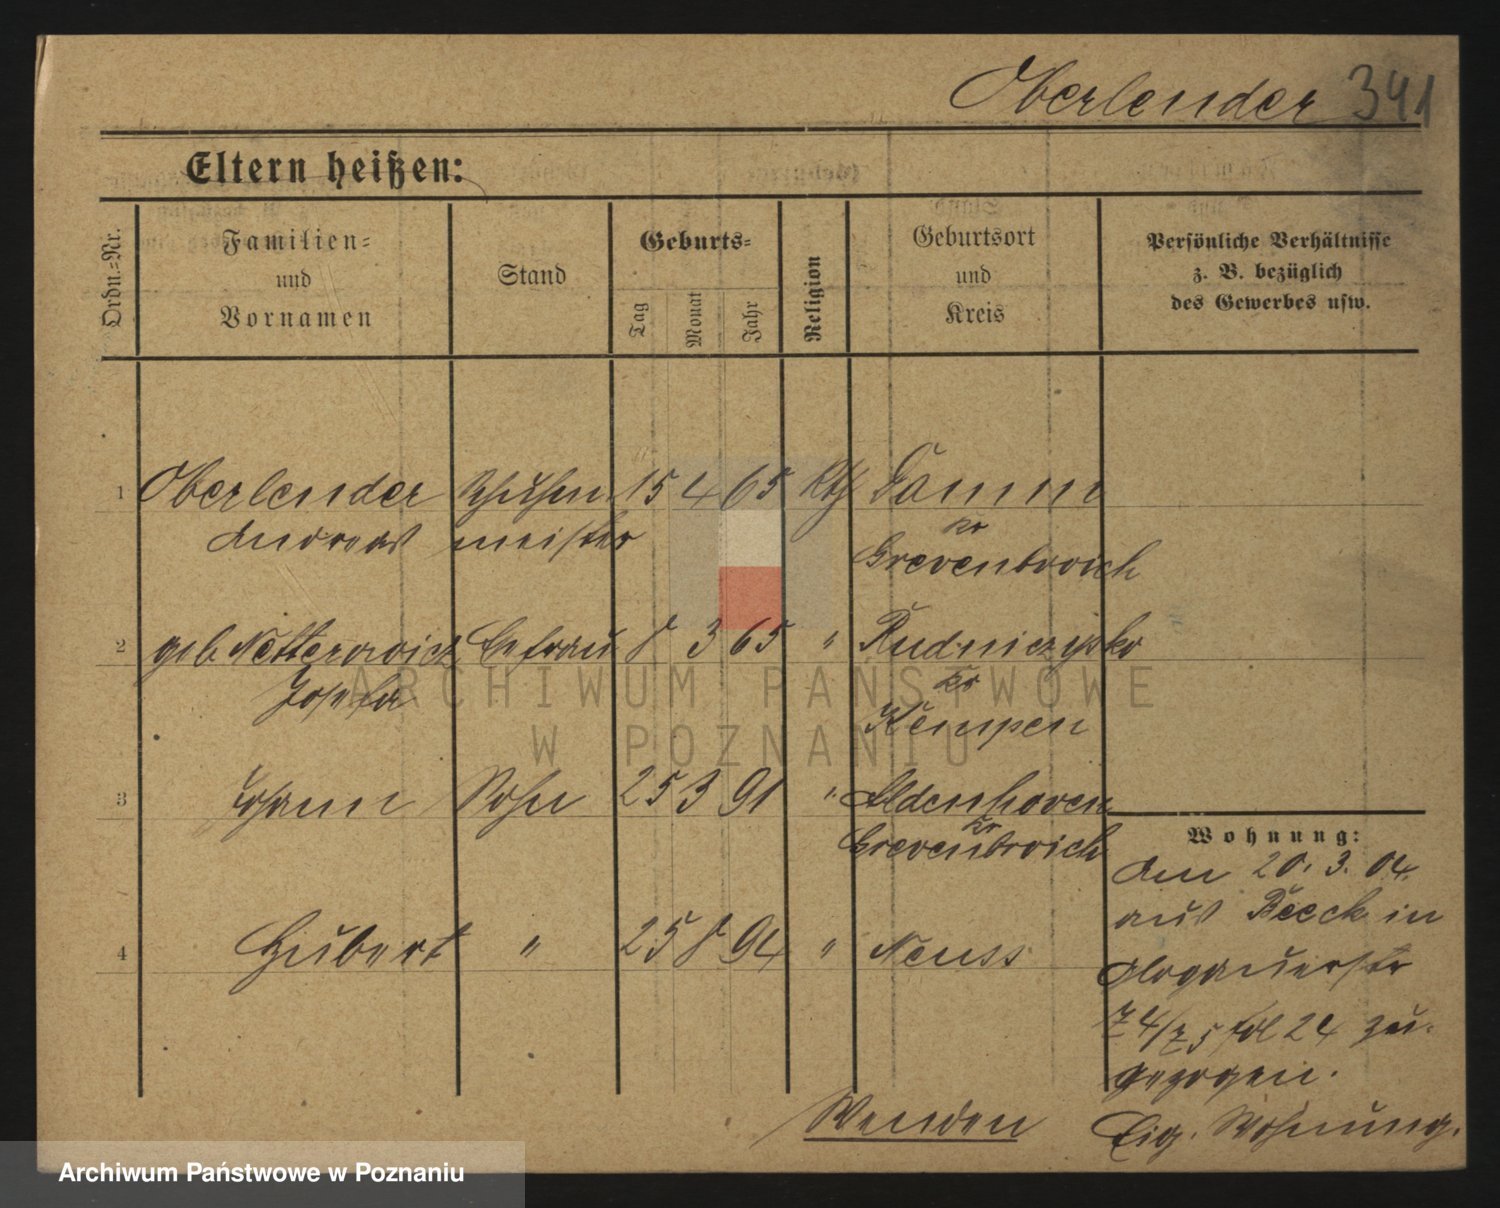 Oberlender 341
Eltern heißen:
Ordn.=Nr.
Familien=
und
Vornamen
Stand
Geburts=
Tag
Monat
Jahr
Religion
Geburtsort
und
Kreis
Persönliche Verhältnisse
z. B. bezüglich
des Gewerbes usw.
1 Oberlender 15 4 65 Kth Damm
Andreas meister kr
Grevenbroich
2 geb Netterowicz Ehefrau 8 3 65 " Rudniczysko
Josefa kr
Kempen
3 Johann Sohn 25 3 91 " Aldenhoven
kr
Grevenbroich
4 Hubert " 25 8 94 " Neuss
Wohnung:
Am 20. 3. 04.
aus Beeck in
Glogauerstr
74/75 bei 24 zu-
gezogen.
Eig. Wohnung.
Wenden
ARCHIWUM PAŃSTWOWE
W POZNANIU
Archiwum Państwowe w Poznaniu